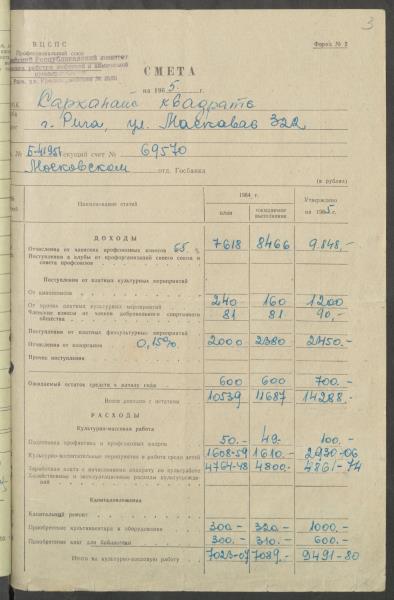 3
ВЦСПС
Форма № 2
Профессиональный союз
СМЕТА
на 1965 г.
Сарканайс квадратс
г. Рига, ул. Маскавас 322
№ Текущий счет № 69570
Московском отд. Госбанка
(в рублях)
Наименование статей
1964 г.
план
ожидаемое выполнение
Утверждено на 1965 г.
ДОХОДЫ
Отчисления от членских профсоюзных взносов 65 % 7618 8466 9.848,-
Поступления в клубы от профорганизаций своего союза и совета профсоюзов
Поступления от платных культурных мероприятий
От киносеансов
От прочих платных культурных мероприятий 240 160 1200
Членские взносы от членов добровольного спортивного общества 81 81 90,-
Поступления от платных физкультурных мероприятий
Отчисления от хозорганов 0,15% 2000 2380 2450.-
Прочие поступления
Ожидаемый остаток средств к началу года 600 600 700.-
Всего доходов с остатком 10539 11687 14288.-
РАСХОДЫ
Культурно-массовая работа
Подготовка профактива и профсоюзных кадров 50.- 49.- 100.-
Культурно-воспитательные мероприятия и работа среди детей 1608-59 1610.- 2930-06
Заработная плата с начислениями аппарату по культработе 4764-48 4800.- 4861-74
Хозяйственные и эксплуатационные расходы культучреждений
Капиталовложения
Капитальный ремонт
Приобретение культинвентаря и оборудования 300.- 320.- 1000.-
Приобретение книг для библиотеки 300.- 310.- 600.-
Итого на культурно-массовую работу 7023-07 7089.- 9491-80